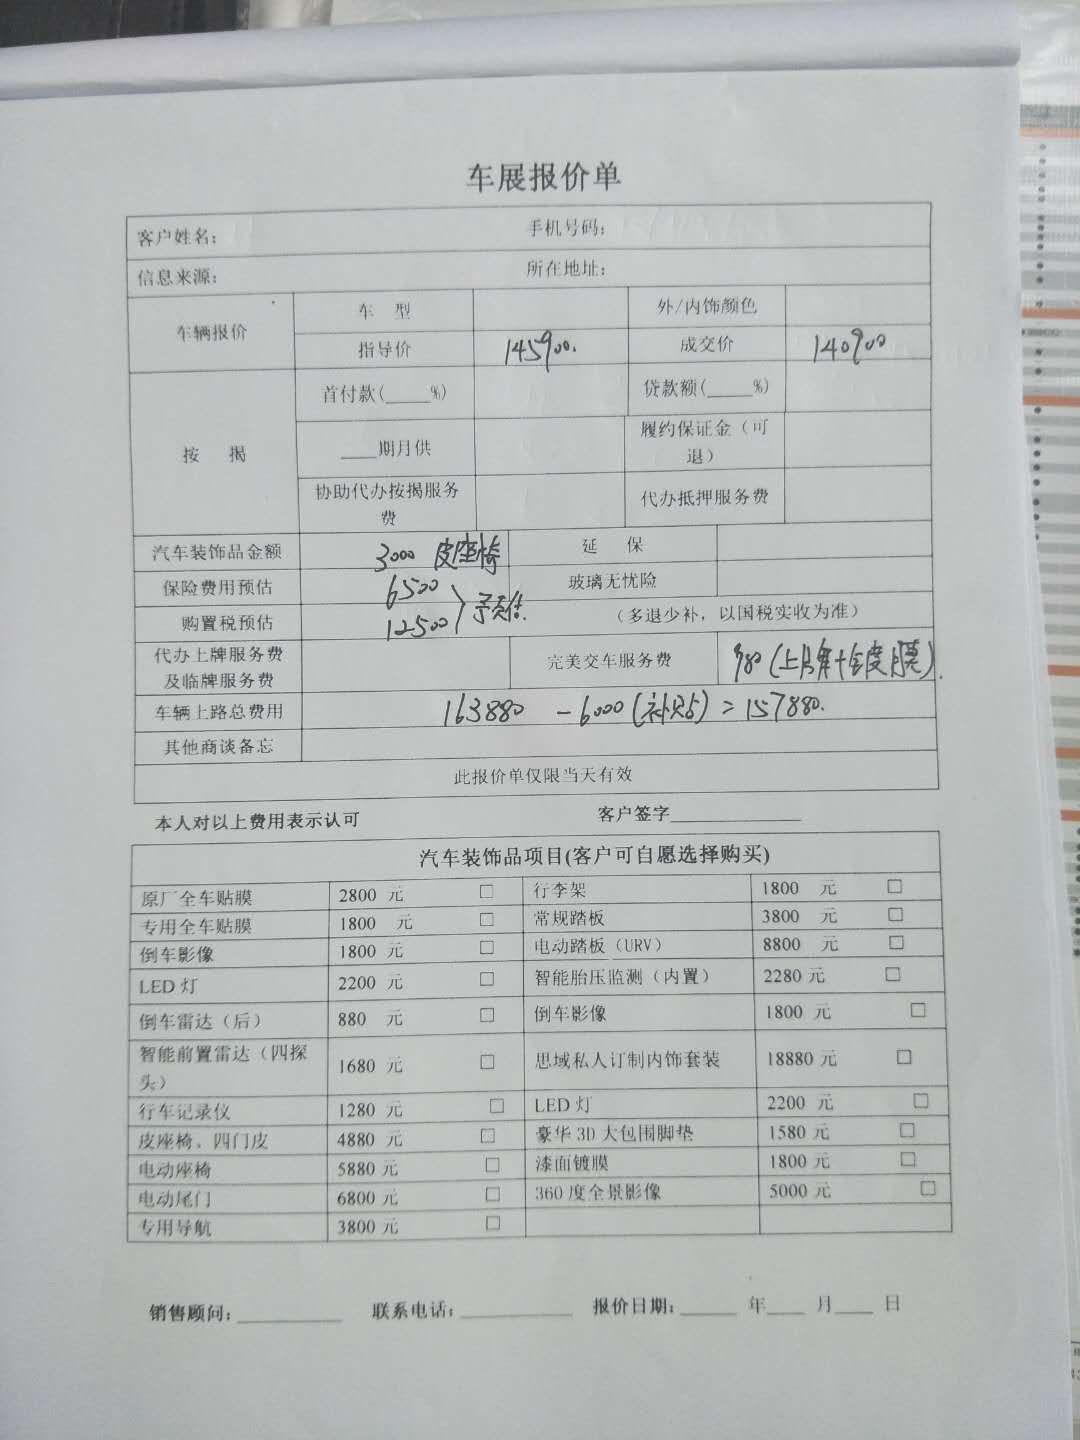 车展报价单
客户姓名： 手机号码：
信息来源： 所在地址：
车辆报价 车 型 外/内饰颜色
指导价 145900. 成交价 140900
按 揭 首付款(____%) 贷款额(____%)
____期月供 履约保证金（可退）
协助代办按揭服务费 代办抵押服务费
汽车装饰品金额 3000 皮座椅 延 保
保险费用预估 6500 玻璃无忧险
购置税预估 12500 }予估. （多退少补，以国税实收为准）
代办上牌服务费及临牌服务费 完美交车服务费 980 (上牌+全度膜).
车辆上路总费用 163880 - 6000(补贴) = 157880.
其他商谈备忘
此报价单仅限当天有效
本人对以上费用表示认可 客户签字____________
汽车装饰品项目(客户可自愿选择购买)
原厂全车贴膜 2800 元 □ 行李架 1800 元 □
专用全车贴膜 1800 元 □ 常规踏板 3800 元 □
倒车影像 1800 元 □ 电动踏板（URV） 8800 元 □
LED 灯 2200 元 □ 智能胎压监测（内置） 2280 元 □
倒车雷达（后） 880 元 □ 倒车影像 1800 元 □
智能前置雷达（四探头） 1680 元 □ 思域私人订制内饰套装 18880 元 □
行车记录仪 1280 元 □ LED 灯 2200 元 □
皮座椅、四门皮 4880 元 □ 豪华 3D 大包围脚垫 1580 元 □
电动座椅 5880 元 □ 漆面镀膜 1800 元 □
电动尾门 6800 元 □ 360 度全景影像 5000 元 □
专用导航 3800 元 □
销售顾问：__________ 联系电话：__________ 报价日期：_____ 年____ 月____ 日